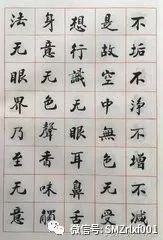 不垢不淨不增不減
是故空中無色无受
想行識无眼耳鼻舌
身意无色聲香味觸
法无眼界乃至无意
微信号: SMZrlxf001